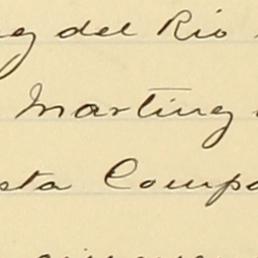 y del Rio
Marting
sta Compa